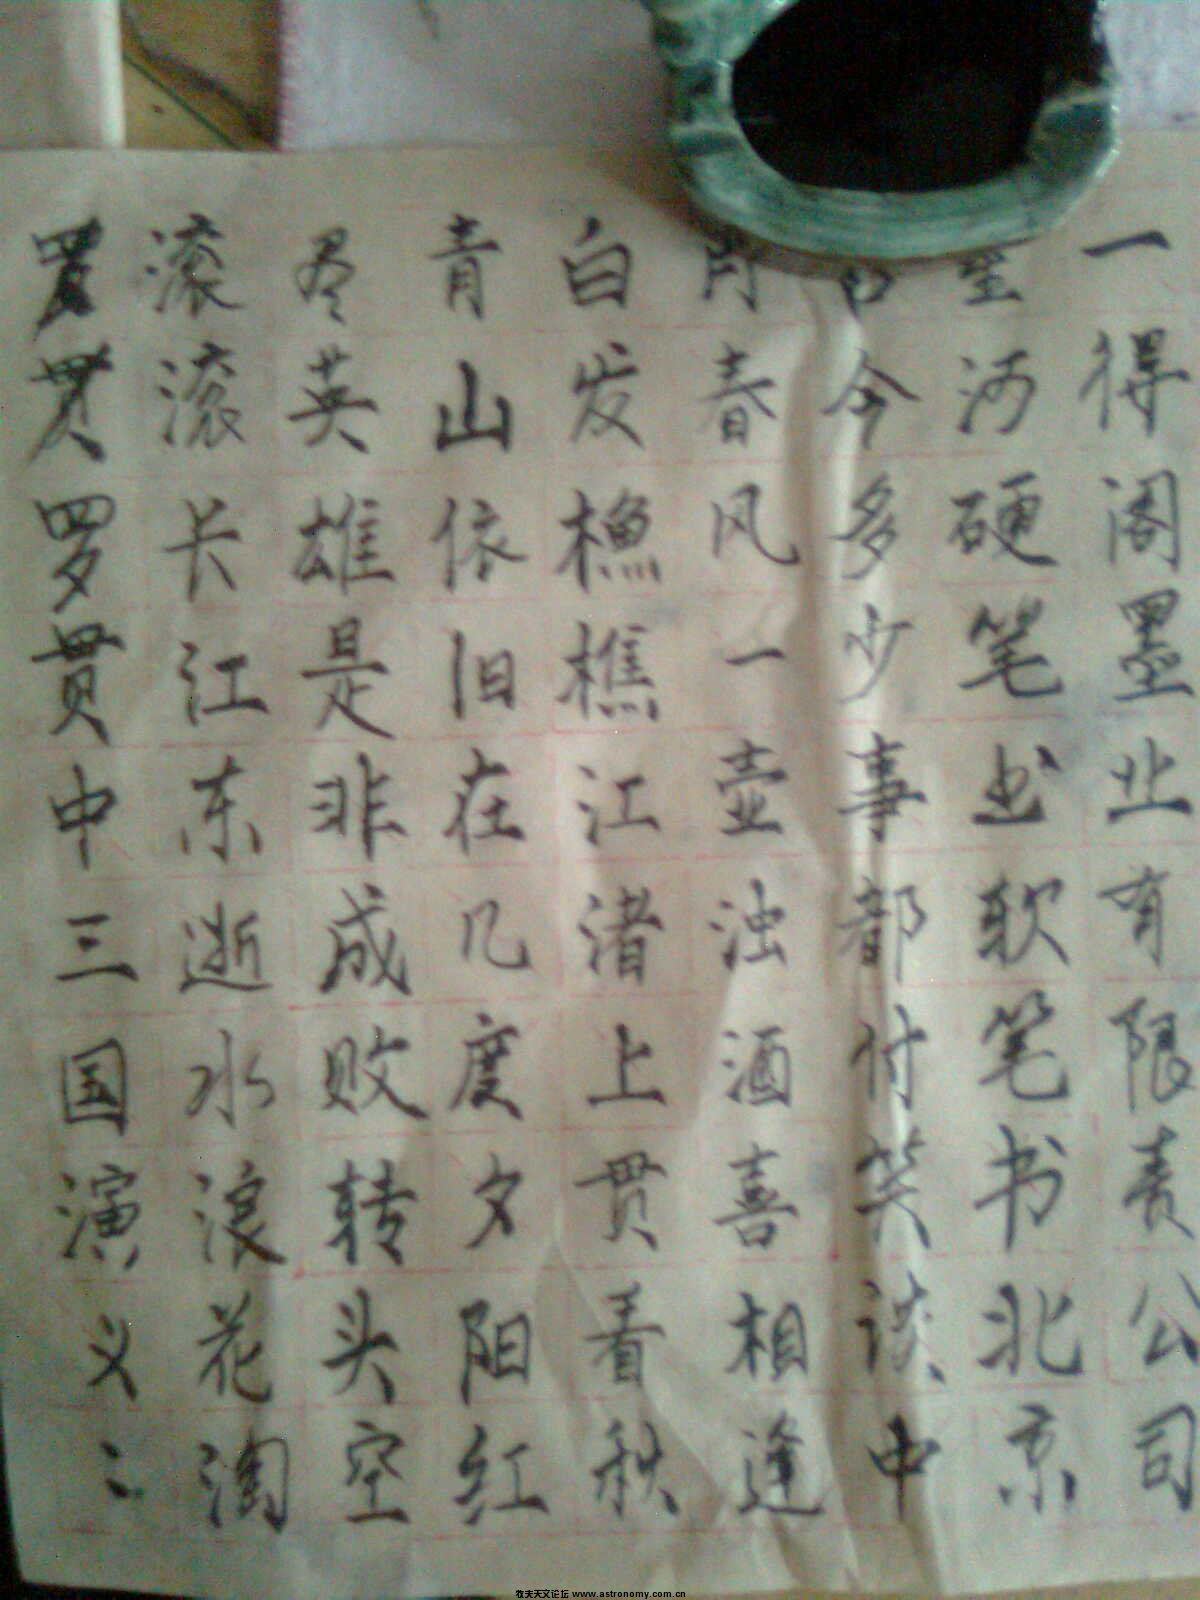 罗贯罗贯中三国演义:
滚滚长江东逝水浪花淘
尽英雄是非成败转头空
青山依旧在几度夕阳红
白发樵江渚上贯看秋
月春风一壶浊酒喜相逢
古今多少事都付笑谈中
星河硬笔出软笔书北京
一得阁墨业有限责公司
牧夫天文论坛 www.astronomy.com.cn